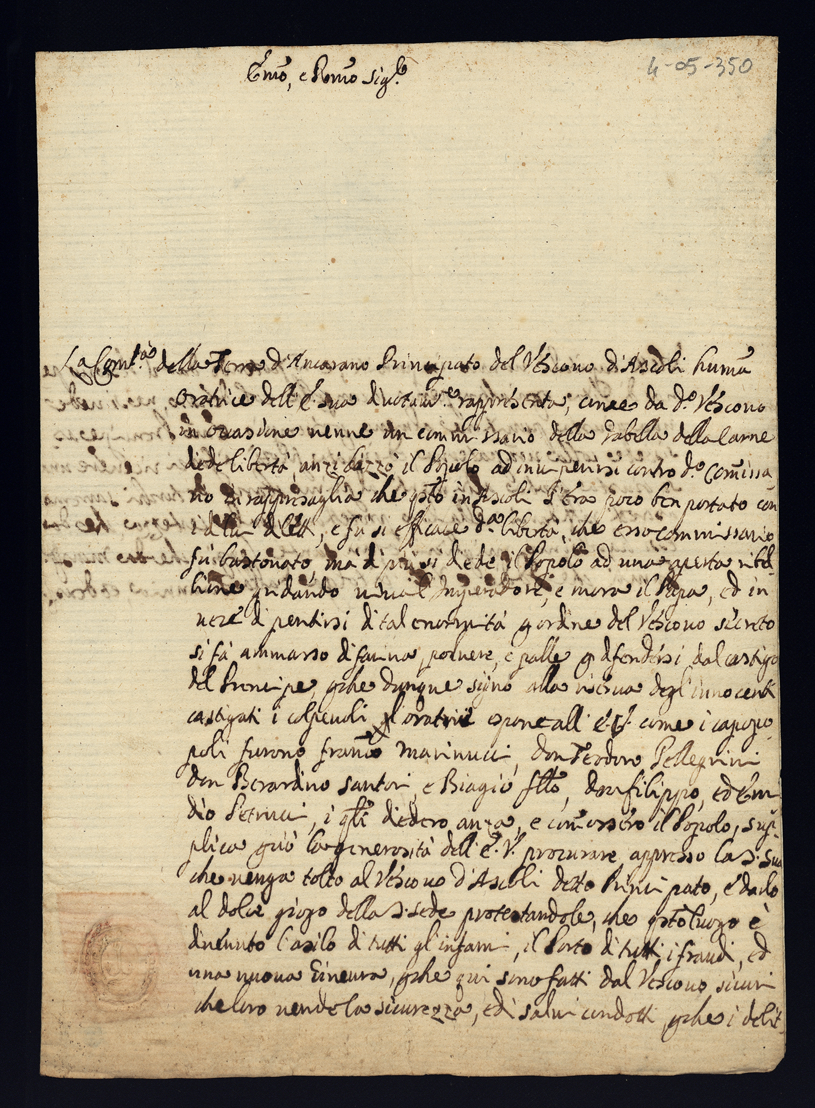 4-05-350
Emo, e Rmo Sigre
La Comtà della Terra d'Ancarano Principato del Vescovo d'Ascoli humã
oratrice dell'E. sua divotamte rappresenta, come da do Vescovo
in occasione venne un commissario della Gabella della Carne
diede libertà anzi il Popolo ad contro do Comissa
rio di rappresaglia che qsto in Ascoli s'era poco ben portato con
i di lett, e fù si efficace da libertà, che esso commissario
fù bastonato, mà di più si diede il Popolo ad una aperta ribel
lione gridando viva l'Imperadore, e mora il Papa, ed in
vece di pentirsi di tal enormità p ordine del Vescovo secreto
si fà ammasso di farina, polvere, e palle p difendersi dal castigo
del Prencipe, pche dunque siano alla riserva degl'innocenti
castigati i colpevoli l'oratrice espone all'E.V. come i capopo
poli furono Franco Marinucci, Don Teodoro Pellegrini
Don Berardino Santori, e Biagio fllo, Don Filippo, ed Emi
dio Petrucci, i qli diedero anza, e il Popolo, sup
plica pciò la generosità dell'E.V. procurare appresso la S. Sua
che venga tolto al Vescovo d'Ascoli detto Principato, e darlo
al dolce giogo della S. Sede protestandole, che qsto luogo è
divenuto l'asilo di tutti gl'infami, il Porto di tutti i fraudi, ed
una nuova Ginevra, pche qui sono fatti dal Vescovo sicuri
che loro vende la sicurezza, ed i salvi condotti pche i delit